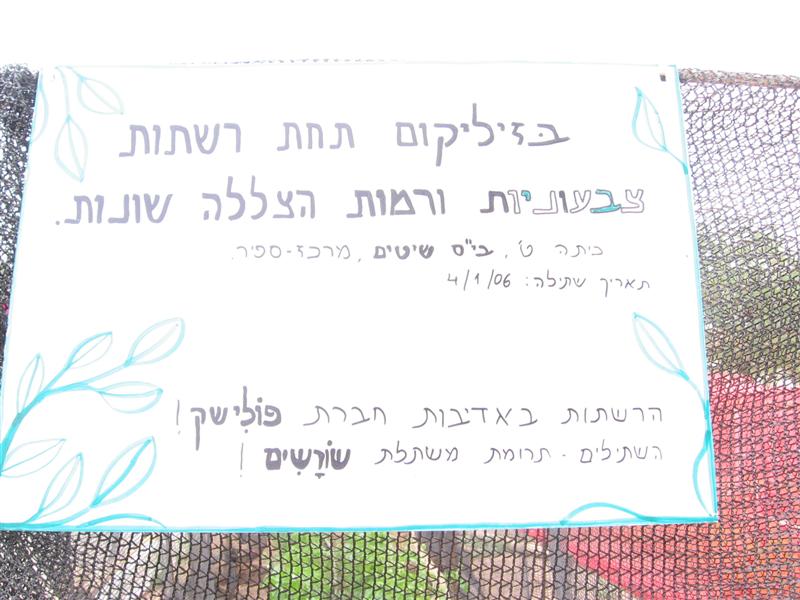 בזיליקום תחת רשתות
צבעוניות ורמות הצללה שונות.
כיתה ט', בי"ס שיטים, מרכז-ספיר.
תאריך שתילה: 4/1/06
הרשתות באדיבות חברת פּוֹלִישק!
השתילים - תרומת משתלת שׁוֹרָשִׁים!